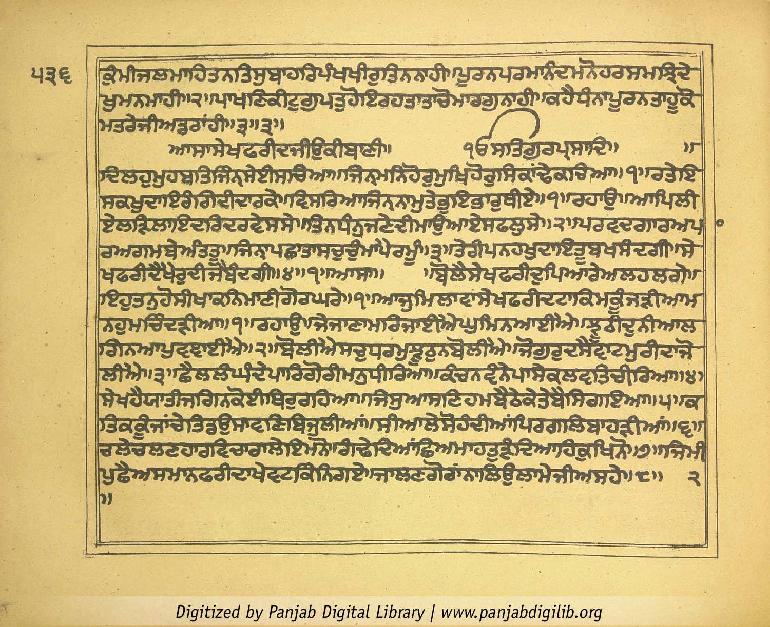 ੫੩੬
ਕੁੰਮੀਜਲਮਾਹਿਤਨਤਿਸੁਬਾਹਰਿਪੰਖਖੀਰੁਤਿਨਨਾਹੀ॥ਪੂਰਨਪਰਮਾਨੰਦਮਨੋਹਰਸਮਝਿਦੇ
ਖੁਮਨਮਾਹੀ॥੨॥ਪਾਖਣਿਕੀਟੁਗੁਪਤੁਹੋਇਰਹਤਾਤਾਚੋਮਾਰਗੁਨਾਹੀ॥ਕਹੈਧੰਨਾਪੂਰਨਤਾਹੂਕੋ
ਮਤਰੇਜੀਅਡਰਾਂਹੀ॥੩॥੩॥
ਆਸਾਸੇਖਫਰੀਦਜੀਉਕੀਬਾਣੀ॥ ੴਸਤਿਗੁਰਪ੍ਰਸਾਦਿ॥ ॥
ਦਿਲਹੁਮੁਹਬਤਿਜਿੰਨ੍ਹਸੇਈਸਚਿਆ॥ਜਿਨ੍ਹਮਨਿਹੋਰੁਮੁਖਿਹੋਰੁਸਿਕਾਂਢੇਕਚਿਆ॥੧॥ਰਤੇਇ
ਸਕਖੁਦਾਇਰੰਗਿਦੀਦਾਰਕੇ॥ਵਿਸਰਿਆਜਿਨ੍ਹਨਾਮੁਤੇਭੁਇਭਾਰੁਥੀਏ॥੧॥ਰਹਾਉ॥ਆਪਿਲੀ
ਏਲੜਿਲਾਇਦਰਿਦਰਵੇਸਸੇ॥ਤਿਨਧੰਨੁਜਣੇਦੀਮਾਉਆਏਸਫਲੁਸੇ॥੨॥ਪਰਵਦਗਾਰਅਪਾ
ਰਅਗਮਬੇਅੰਤਤੂ॥ਜਿਨਾਪਛਾਤਾਸਚੁਚੁੰਮਾਪੈਰਮੂੰ॥੩॥ਤੇਰੀਪਨਹਖੁਦਾਇਤੂਬਖਸੰਦਗੀ॥ਸੇ
ਖਫਰੀਦੈਖੈਰੁਦੀਜੈਬੰਦਗੀ॥੪॥੧॥ਆਸਾ॥ ॥ਬੋਲੈਸੇਖਫਰੀਦੁਪਿਆਰੇਅਲਹਲਗੇ॥
ਇਹੁਤਨੁਹੋਸੀਖਾਕਨਿਮਾਣੀਗੋਰਘਰੇ॥੧॥ਆਜੁਮਿਲਾਵਾਸੇਖਫਰੀਦਟਾਕਿਮਕੂੰਜੜੀਆਮ
ਨਹੁਮਚਿੰਦੜੀਆ॥੧॥ਰਹਾਉ॥ਜੇਜਾਣਾਮਰਿਜਾਈਐਘੁਮਿਨਆਈਐ॥ਝੂਠੀਦੁਨੀਆਲ
ਗਿਨਆਪੁਵਞਾਈਐ॥੨॥ਬੋਲੀਐਸਚੁਧਰਮੁਝੂਠੁਨਬੋਲੀਐ॥ਜੋਗੁਰੁਦਸੈਵਾਟਮੁਰੀਦਾਜੋ
ਲੀਐ॥੩॥ਛੈਲਲੰਘੰਦੇਪਾਰਿਗੋਰੀਮਨੁਧੀਰਿਆ॥ਕੰਚਨਵੰਨੇਪਾਸੇਕਲਵਤਿਚੀਰਿਆ॥੪॥
ਸੇਖਹੈਯਾਤੀਜਗਿਨਕੋਈਥਿਰੁਰਹਿਆ॥ਜਿਸੁਆਸਣਿਹਮਬੈਠੇਕੇਤੇਬੈਸਿਗਇਆ॥੫॥ਕ
ਤਿਕਕੂੰਜਾਂਚੇਤਿਡਉਸਾਵਣਿਬਿਜੁਲੀਆਂ॥ਸੀਆਲੇਸੋਹੰਦੀਆਂਪਿਰਗਲਿਬਾਹੜੀਆਂ॥੬॥
ਚਲੇਚਲਣਹਾਰਵਿਚਾਰਾਲੇਇਮਨੋ॥ਗੰਢੇਦਿਆਂਛਿਅਮਾਹਤੁੜੰਦਿਆਹਿਕੁਖਿਨੋ॥੭॥ਜਿਮੀ
ਪੁਛੈਅਸਮਾਨਫਰੀਦਾਖੇਵਟਕਿੰਨਿਗਏ॥ਜਾਲਣਗੋਰਾਂਨਾਲਿਉਲਾਮੇਜੀਅਸਹੇ॥੮॥ ੨
॥
Digitized by Panjab Digital Library | www.panjabdigilib.org